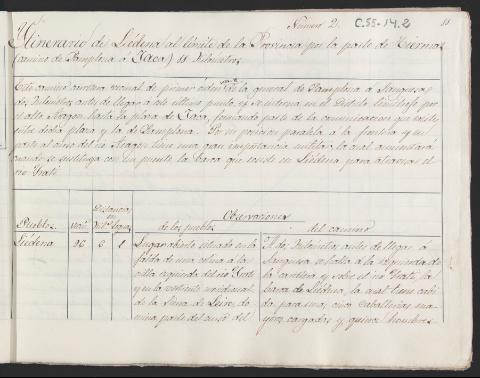 Número 2. C.55-14.2
Itinerario de Liédena al límite de la Provincia por la parte de Tiermas
(camino de Pamplona á Jaca) 18 Kilómetros.
Este camino carretera vecinal de primer orden de la general de Pamplona á Sangüesa,
dos Kilómetros antes de llegar á este último punto, y se interna en el Distrito limítrofe por
el alto Aragon hasta la plaza de Jaca, formando parte de la comunicacion que existe
entre dicha plaza y la de Pamplona. Por su posicion paralela á la frontera y en
parte al curso del rio Aragon tiene una gran importancia militar, la cual aumentará
cuando se sustituya con un puente la barca que existe en Liédena para atravesar el
rio Irati.
Distancias
en
Observaciones
Pueblos. Kil.s leguas de los pueblos del camino
Liédena 96 6 1 Lugar abierto situado en la Á dos Kilómetros antes de llegar á
falda de una colina á la Sangüesa se halla á la izquierda de
orilla izquierda del rio Irati la carretera y sobre el rio Irati, la
y en la vertiente meridional barca de Liédena, la cual tiene cabi-
de la Sierra de Leire, do- da para cinco caballerias ma-
mina parte del curso del yores cargadas y quince hombres.